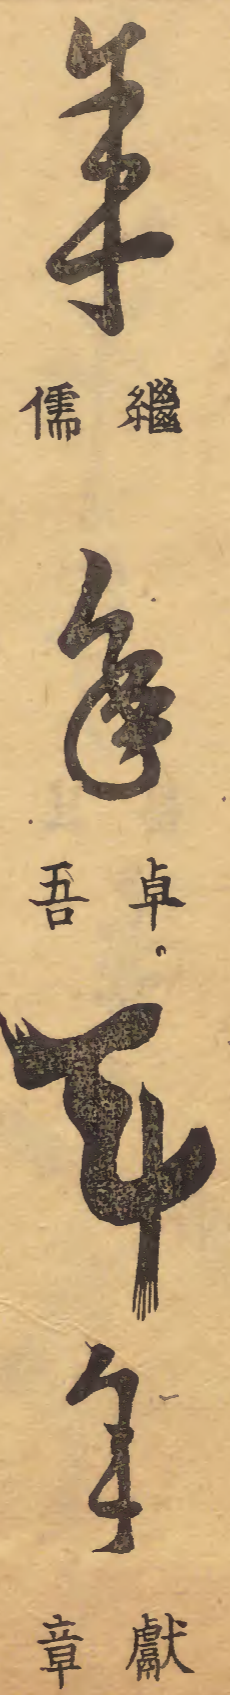 年
繼儒
年
卓吾
年
年
獻章